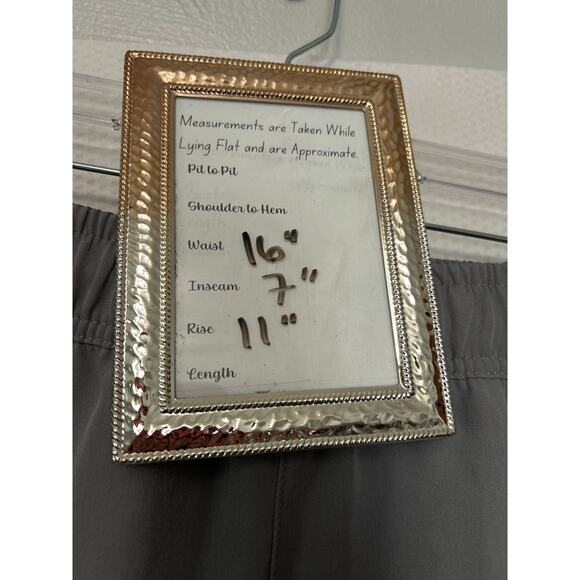 Measurements are Taken While
Lying Flat and are Approximate.
Pit to Pit
Shoulder to Hem
Waist 16"
Inseam 7"
Rise 11"
Length